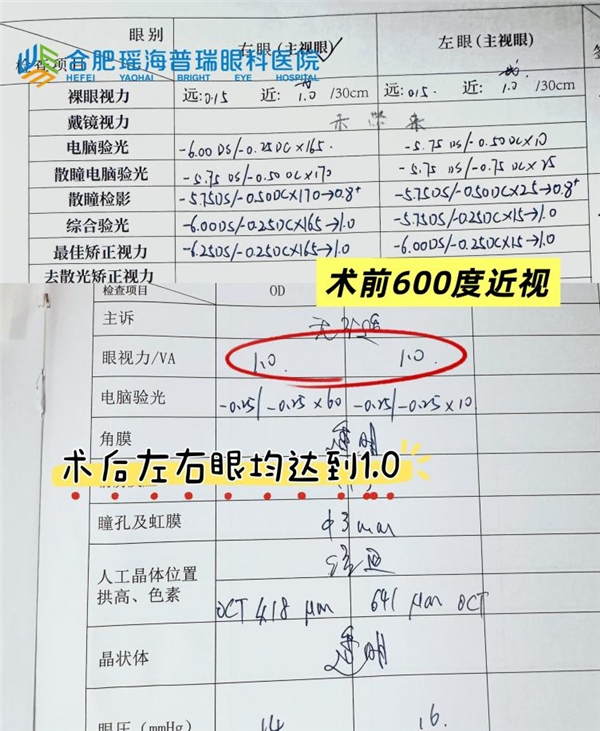 眼别
右眼(主视眼✓
左眼(主视眼)
检查项目
合肥瑶海普瑞眼科医院
HEFEI YAOHAI BRIGHT EYE HOSPITAL
裸眼视力 远:0.15 近: 1.0 /30cm 远:0.15 近: 1.0 /30cm
戴镜视力 未带来
电脑验光 -6.00DS/-0.25DC×165. -5.75DS/-0.50DC×10
散瞳电脑验光 -5.75DS/-0.50DC×170 -5.75DS/-0.75DC×25
散瞳检影 -5.75DS/-0.50DC×170→0.8⁺ -5.75DS/-0.50DC×25→0.8⁺
综合验光 -6.00DS/-0.25DC×165→1.0 -5.75DS/-0.25DC×15→1.0
最佳矫正视力 -6.25DS/-0.25DC×165→1.0 -6.00DS/-0.25DC×15→1.0
去散光矫正视力
术前600度近视
检查项目 OD
主诉
眼视力/VA 1.0. 1.0.
电脑验光 -0.25/-0.25×60 -0.25/-0.25×10
角膜 透明
术后左右眼均达到1.0
瞳孔及虹膜 φ3mm
人工晶体位置
拱高、色素
OCT 418 μm 641 μm OCT
晶状体 透明
眼压 (mmHg) 14 16.